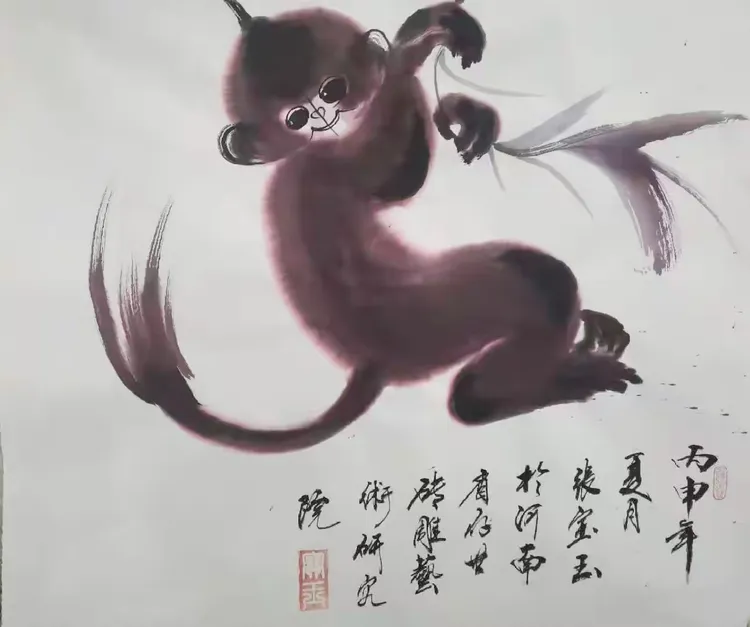 丙申年
夏月
張宝玉
於河南
省世
砖雕藝
術研究
院